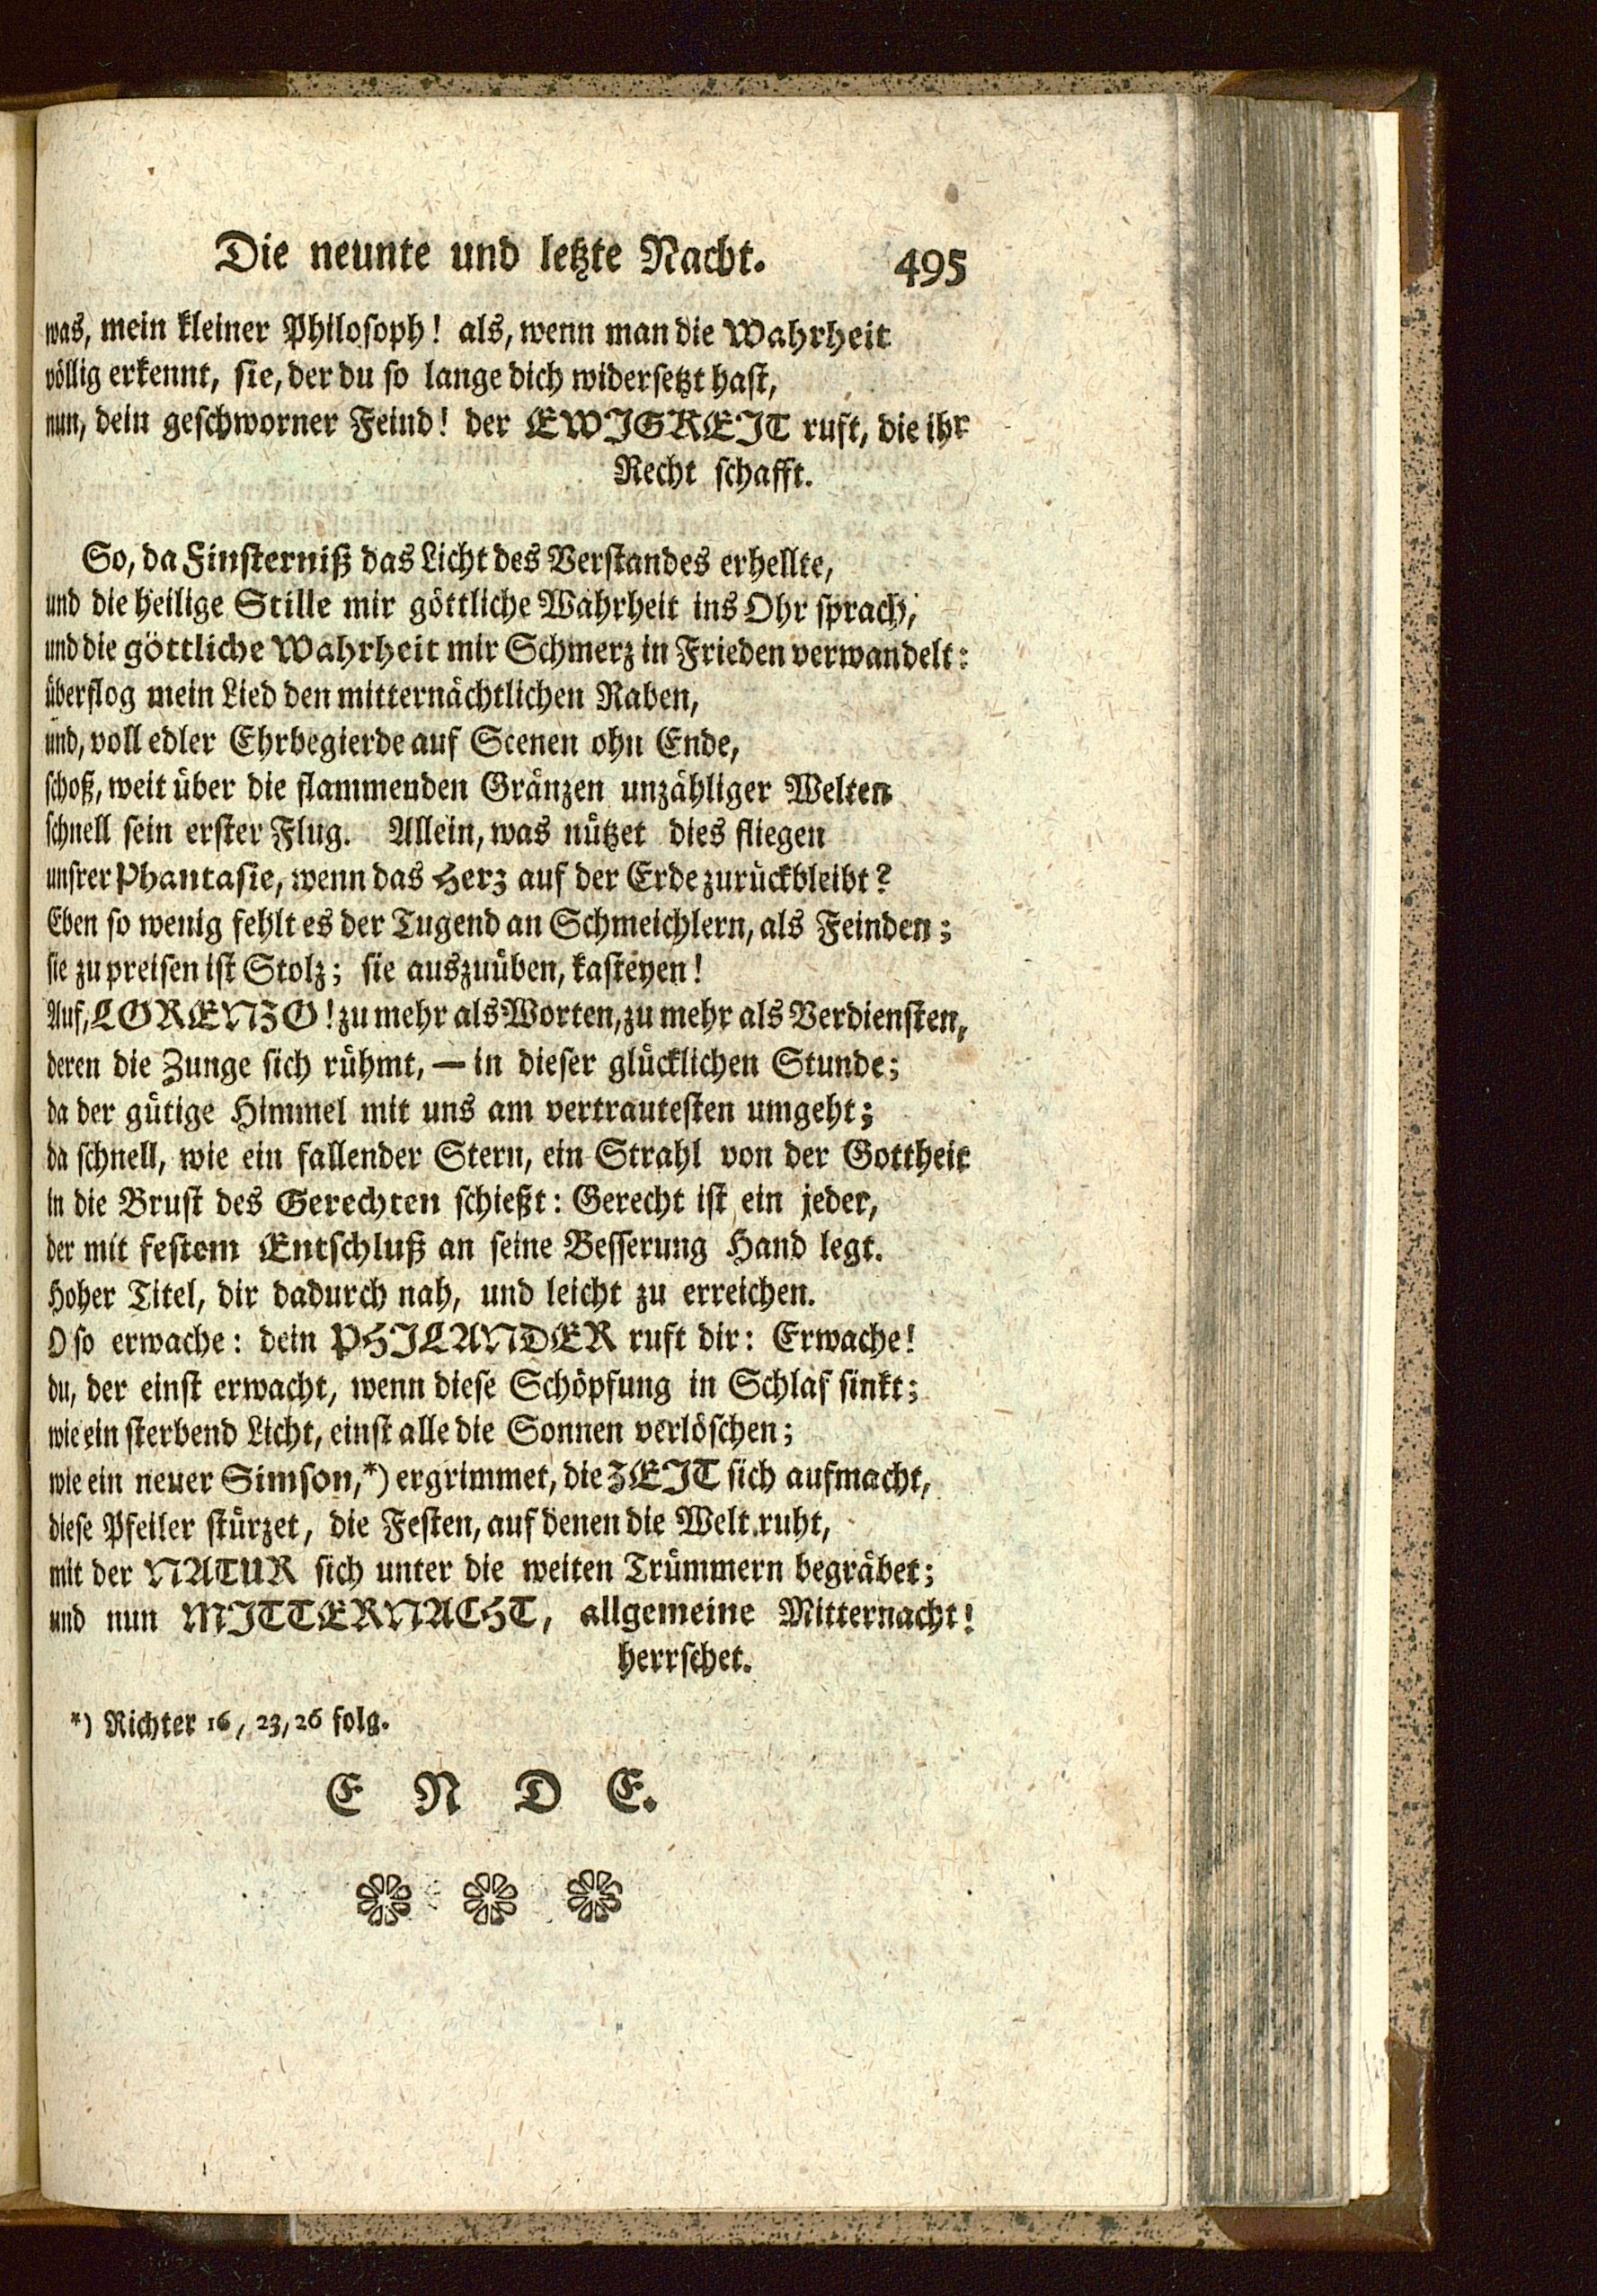 Die neunte und letzte Nacht. 495
was, mein kleiner Philosoph! als, wenn man die Wahrheit
völlig erkennt, sie, der du so lange dich widersetzt hast,
nun, dein geschworner Feind! der EWIGKEIT ruft, die ihr
Recht schafft.
So, da Finsterniß das Licht des Verstandes erhellte,
und die heilige Stille mir göttliche Wahrheit ins Ohr sprach,
und die göttliche Wahrheit mir Schmerz in Frieden verwandelt:
überflog mein Lied den mitternächtlichen Raben,
und, voll edler Ehrbegierde auf Scenen ohn Ende,
schoß, weit über die flammenden Gränzen unzähliger Welten
schnell sein erster Flug. Allein, was nützet dies fliegen
unsrer Phantasie, wenn das Herz auf der Erde zurückbleibt?
Eben so wenig fehlt es der Tugend an Schmeichlern, als Feinden;
sie zu preisen ist Stolz; sie auszuüben, kasteyen!
Auf, LORENZO! zu mehr als Worten, zu mehr als Verdiensten,
deren die Zunge sich rühmt, — in dieser glücklichen Stunde;
da der gütige Himmel mit uns am vertrautesten umgeht;
da schnell, wie ein fallender Stern, ein Strahl von der Gottheit
in die Brust des Gerechten schießt: Gerecht ist ein jeder,
der mit festem Entschluß an seine Besserung Hand legt.
Hoher Titel, dir dadurch nah, und leicht zu erreichen.
O so erwache: dein PHILANDER ruft dir: Erwache!
du, der einst erwacht, wenn diese Schöpfung in Schlaf sinkt;
wie ein sterbend Licht, einst alle die Sonnen verlöschen;
wie ein neuer Simson,*) ergrimmet, die ZEIT sich aufmacht,
diese Pfeiler stürzet, die Festen, auf denen die Welt ruht,
mit der NATUR sich unter die weiten Trümmern begräbet;
und nun MITTERNACHT, allgemeine Mitternacht!
herrschet.
*) Richter 16, 23, 26 folg.
E N D E.